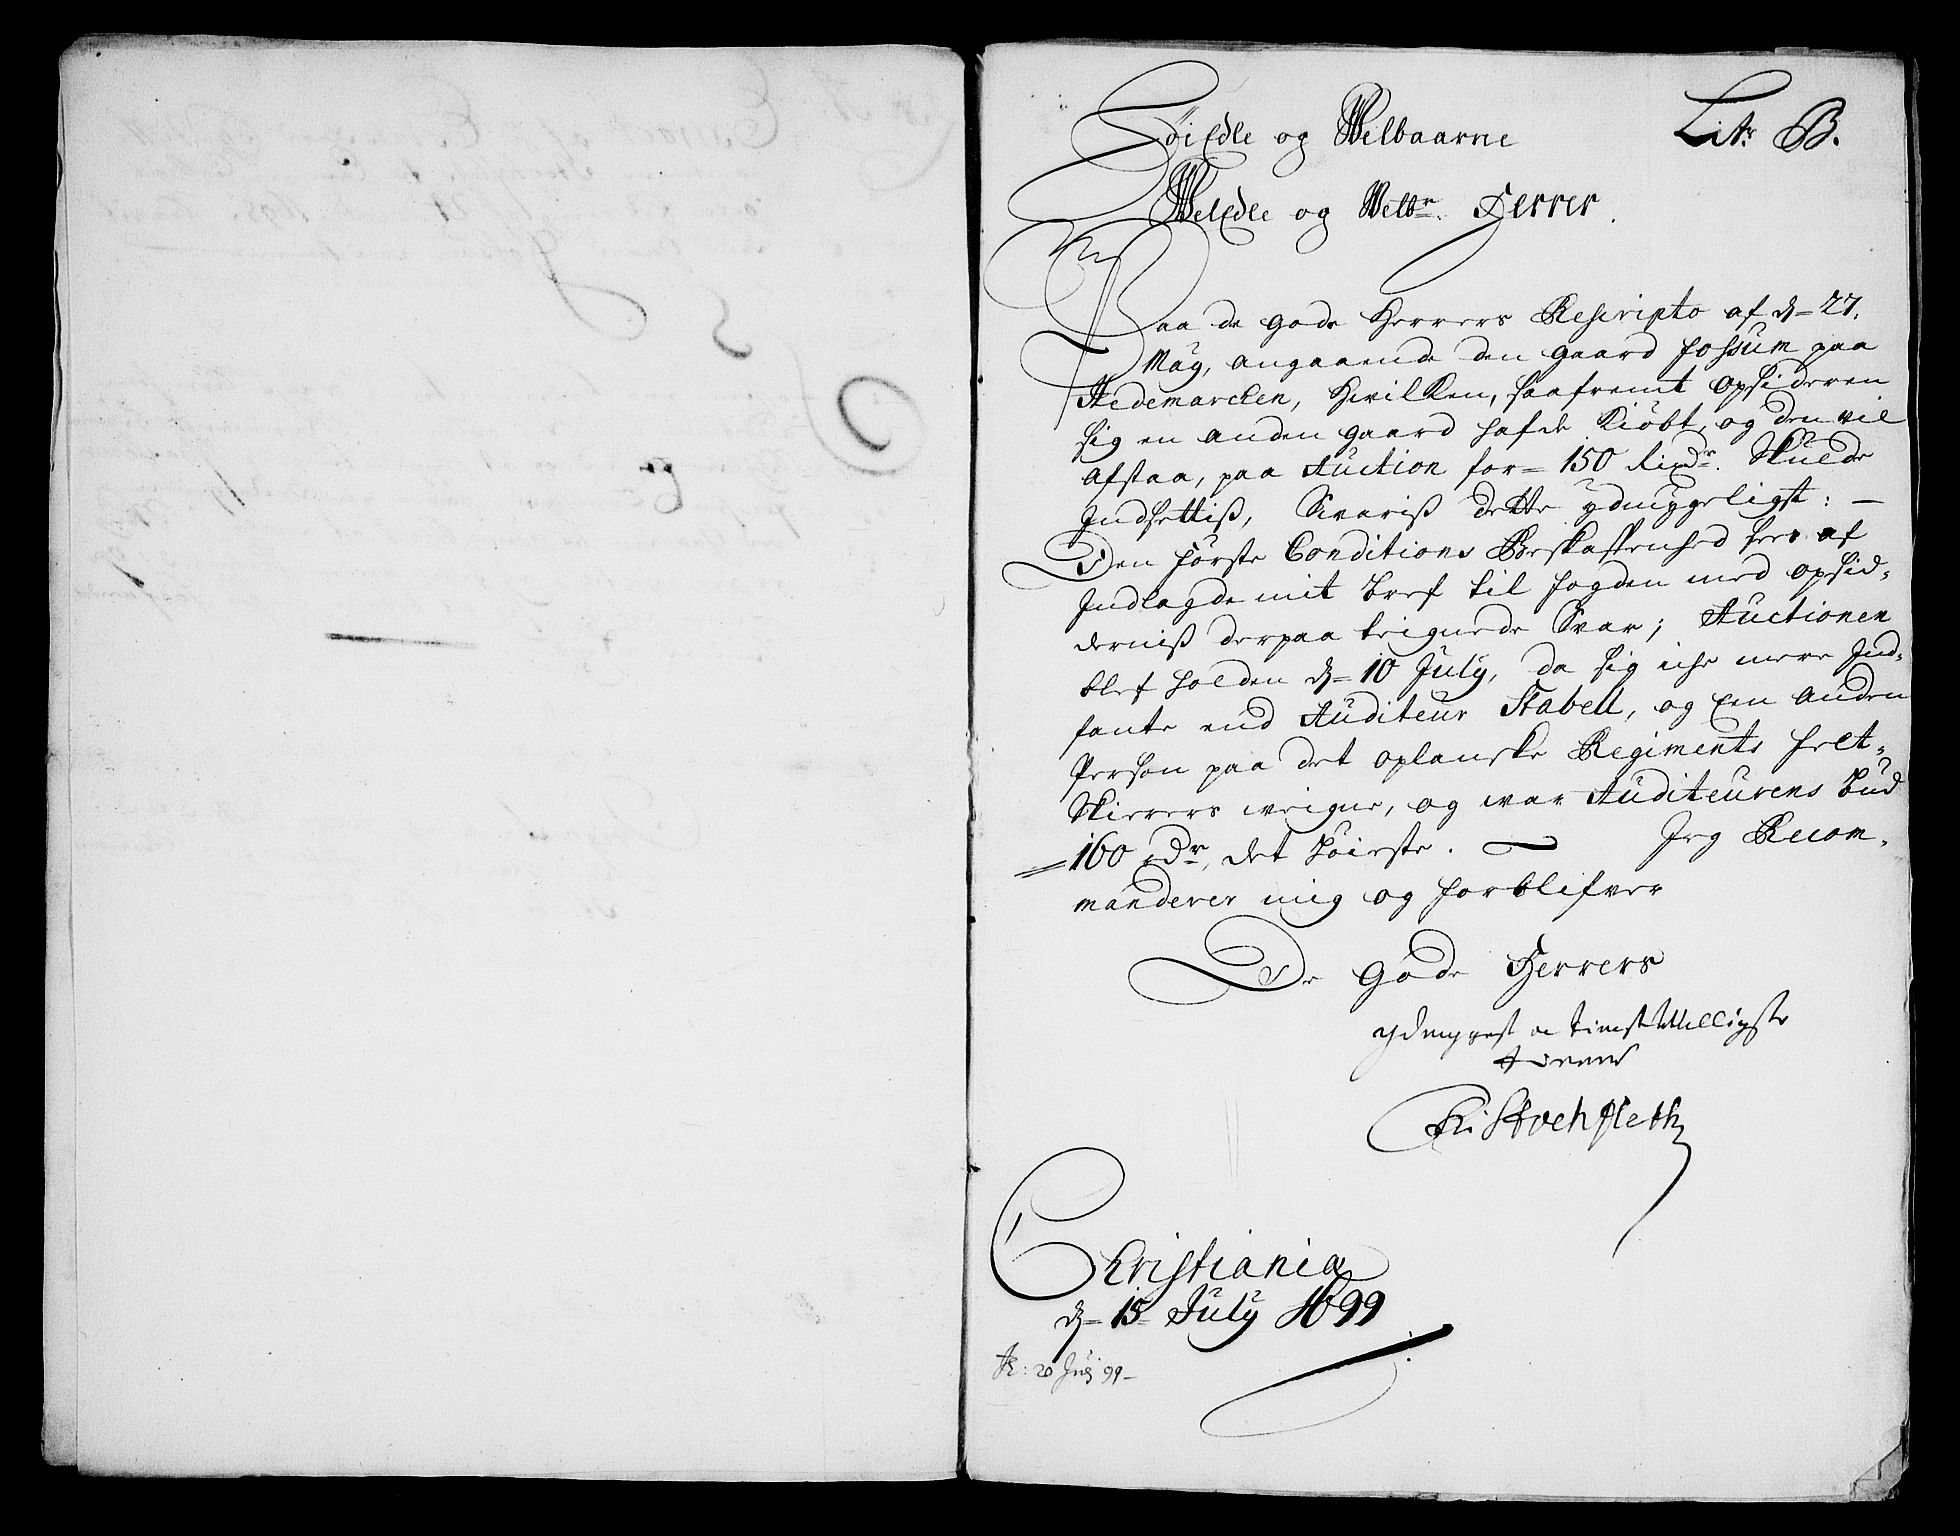 Litr B.
Höi Edle og Welbaarne
WelEdle og Welbr. Herrer.
Paa de gode Herrers Rescripto af d= 27.
May, angaaende den gaard Fossum paa
Hedemarcken, Hvilken, saafremt Opsideren
sig en anden gaard hafde kiöbt, og den vil
afstaa, paa Auction for= 150 Rixdr. Skulde
Indsettiß, Svariß dette ydmygeligst: —
Den förste Conditions Beskaffenhed sees af
Indlagde mit bref til fogden med opsid,
derniß derpaa teignede Svar; Auctionen
blef holden d= 10 July, da sig iche mere Ind,
fante end Auditeur Stabell, og Een anden
Person paa det oplanske Regiments felt,
Skierers weigne, og war Auditeurens bud
160 rdr, det höieste. — Jeg Recom,
manderer mig og forblifver
De Gode Herrers
ydmygest oc tienstWilligste
tienner
Stockfleth
Christiania
d= 15 July 1699
20 July 99